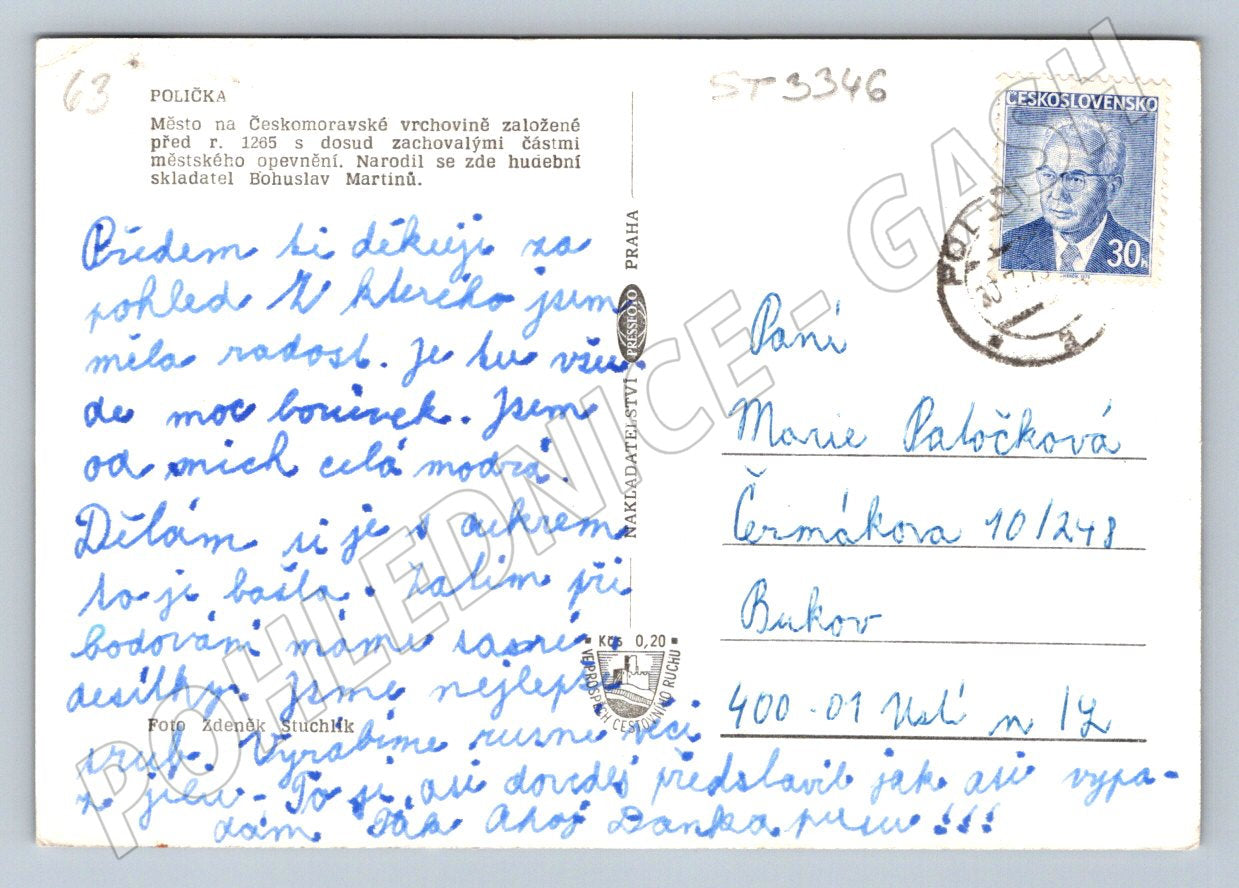 63
ST 3346
POLIČKA
Město na Českomoravské vrchovině založené
před r. 1265 s dosud zachovalými částmi
městského opevnění. Narodil se zde hudební
skladatel Bohuslav Martinů.
ČESKOSLOVENSKO
30
Předem ti děkuji za
pohled z kterého jsem
měla radost. Je tu všu
de moc borůvek. Jsem
od nich celá modrá.
Dělám si je s cukrem
to je bašta. Zatím při
bodování máme samé
desítky. Jsme nejlepší
srub. Vyrábíme různé věci
z jílu - To si asi dovedeš představit jak asi vypa-
dám Pá Ahoj Danka pusu !!!
Foto Zdeněk Stuchlík
NAKLADATELSTVÍ PRESSFOTO PRAHA
Kčs 0,20
VE PROSPĚCH CESTOVNÍHO RUCHU
Paní
Marie Patočková
Čermákova 10/248
Bukov
400-01 Ústí n/L
POHLEDNICE - GASH